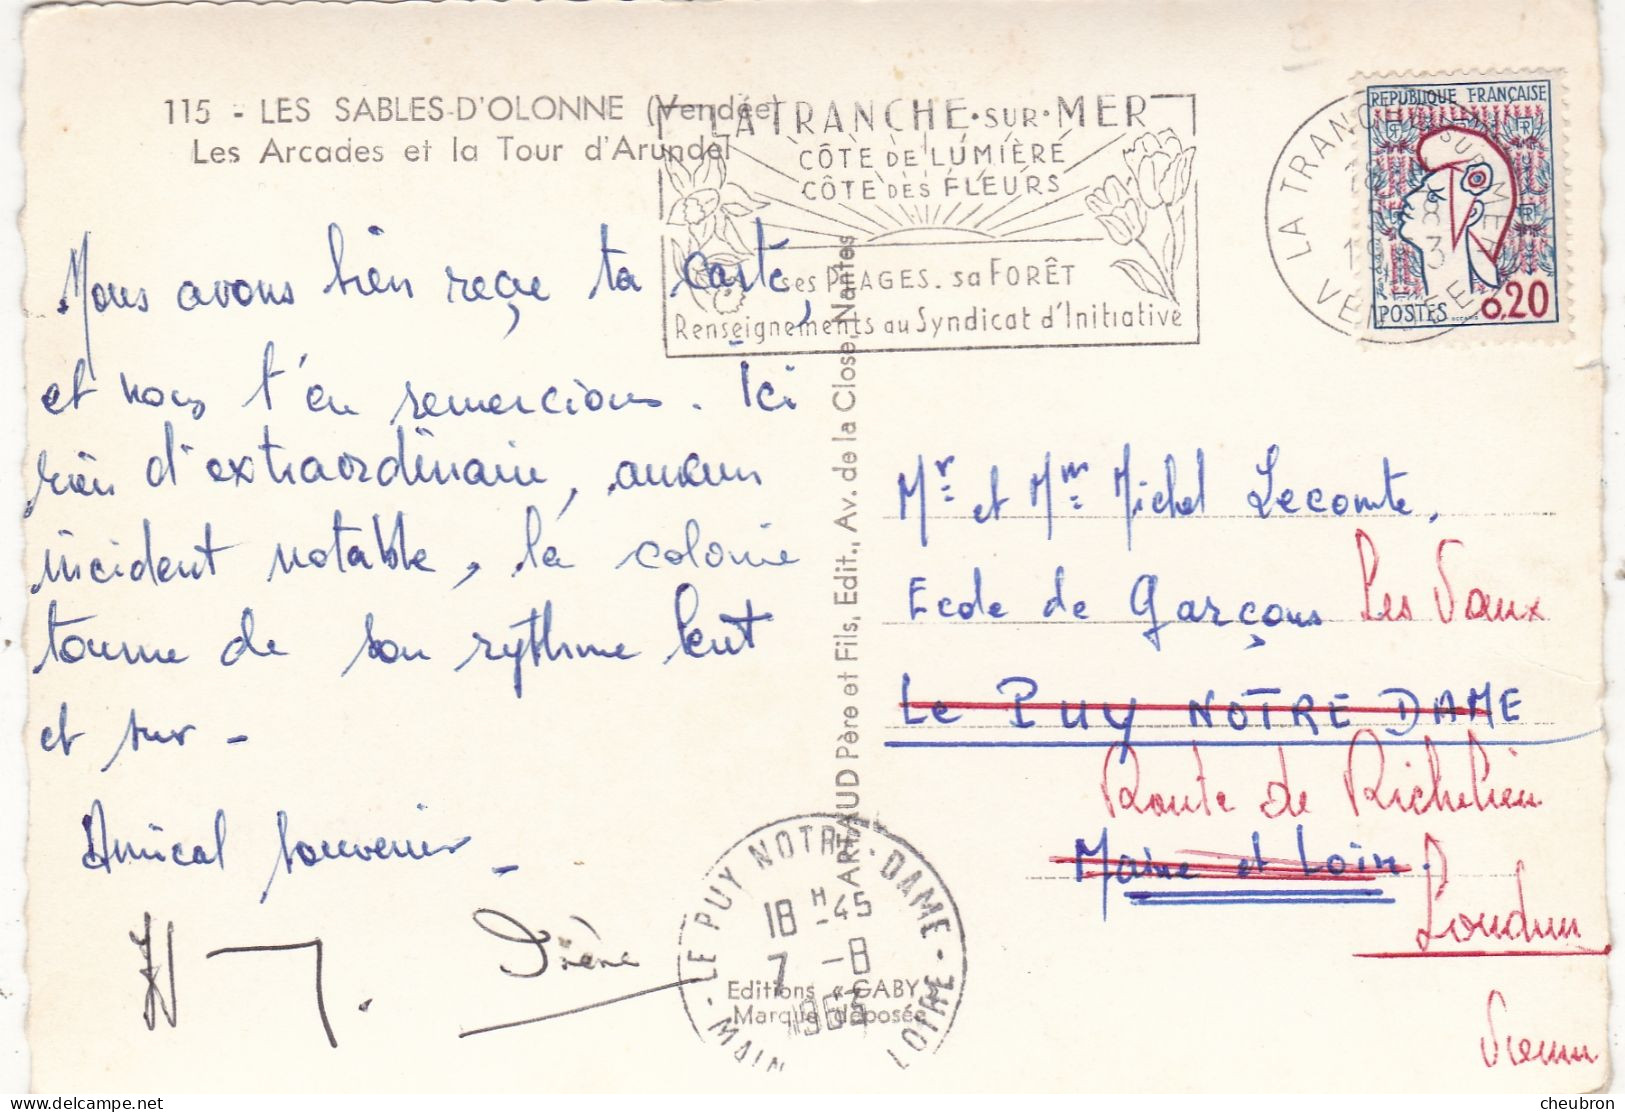 115 - LES SABLES-D'OLONNE (Vendée)
Les Arcades et la Tour d'Arundel
LA TRANCHE-SUR-MER
CÔTE DE LUMIÈRE
CÔTE DES FLEURS
ses PLAGES. sa FORÊT
Renseignements au Syndicat d'Initiative
LA TRANCHE SUR MER
VENDEE
REPUBLIQUE FRANÇAISE
POSTES 0,20
Nous avons bien reçue ta carte,
et nous t'en remercions. Ici
rien d'extraordinaire, aucun
incident notable, la colonie
tourne de son rythme lent
et sur -
Amical souvenir -
Irène
ARTAUD Père et Fils, Edit., Av. de la Close, Nantes
Mr et Mm Michel Lecomte,
Ecole de Garçons Les Vaux
Le PUY NOTRE DAME
Route de Richelieu
Maine et Loire.
Loudun
Vienne
LE PUY NOTRE-DAME -
18 H -45
7 -8
1963
MAIN LOIRE
Editions « GABY »
Marque déposée
cheubron.com